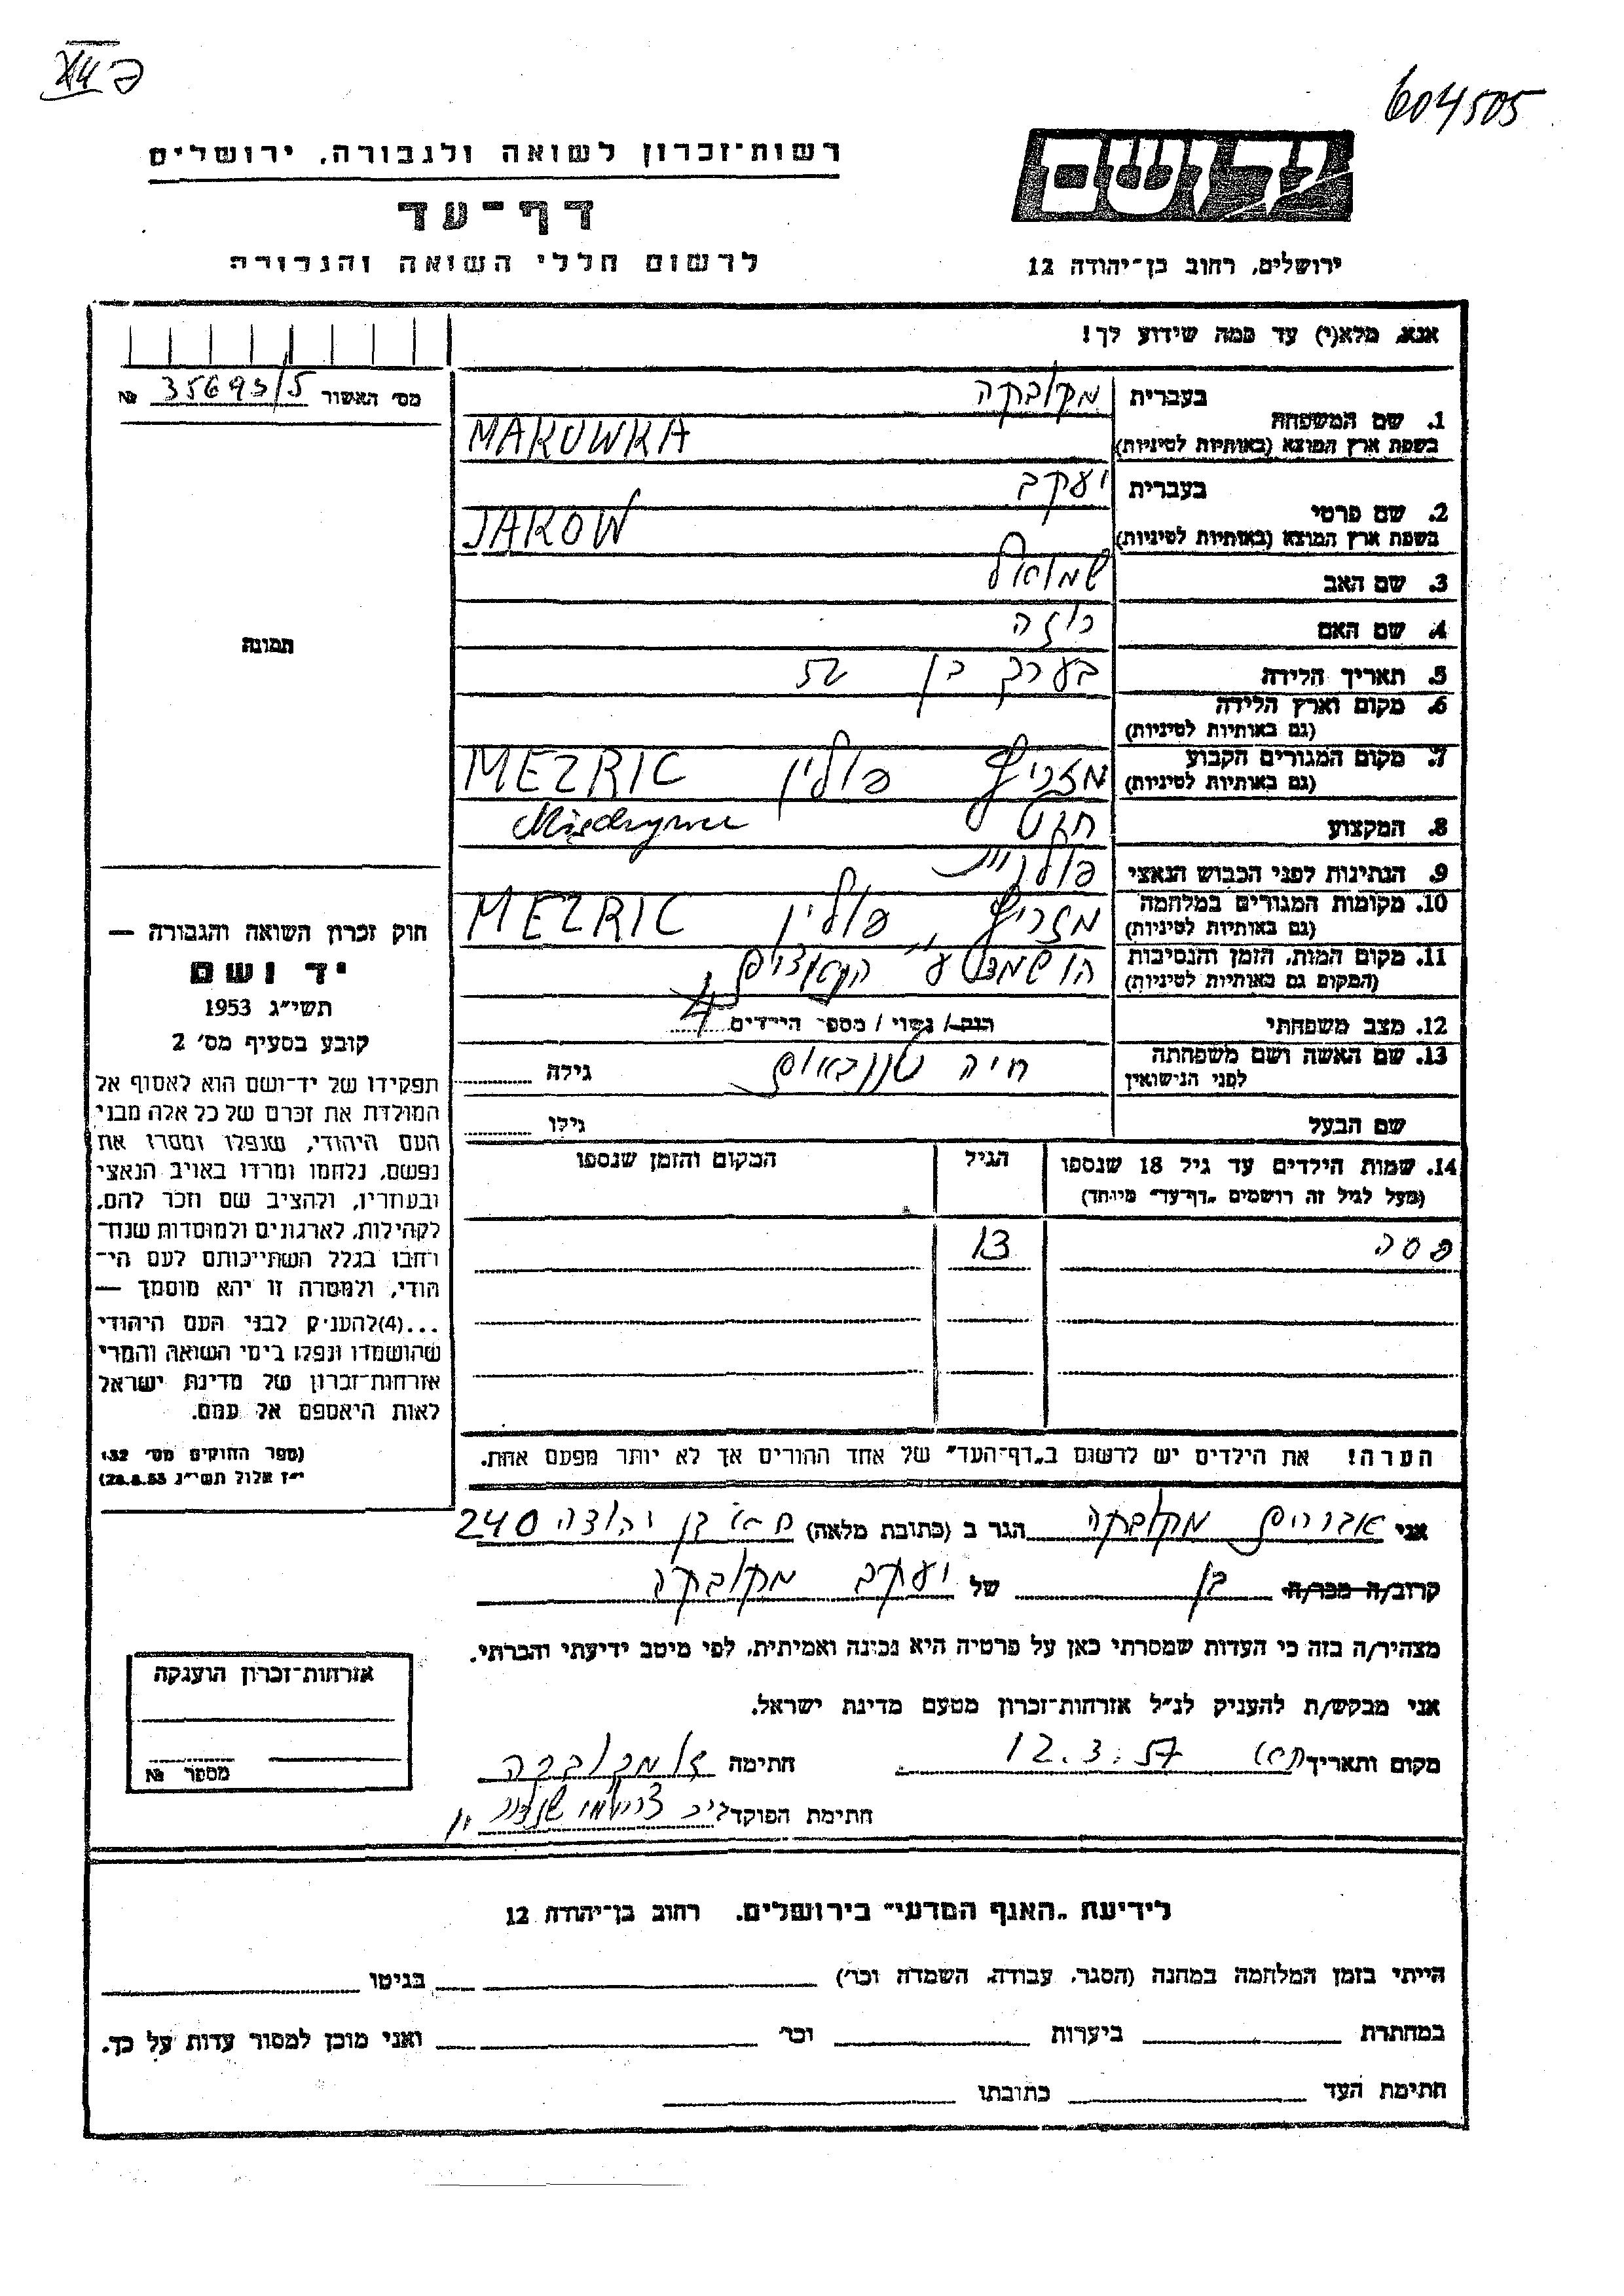 XII פ
604505
יד ושם
רשות־זכרון לשואה ולגבורה, ירושלים
דף־עד
לרשום חללי השואה והגבורה
ירושלים, רחוב בן־יהודה 12
אנא, מלא(י) עד כמה שידוע לך!
מס׳ האשור 35693/5 №
בעברית מקובקה
1. שם המשפחה
בשפת ארץ המוצא (באותיות לטיניות) MAKOWKA
בעברית יעקב
2. שם פרטי
בשפת ארץ המוצא (באותיות לטיניות) JAKOW
3. שם האב שמואל
4. שם האם רוזה
5. תאריך הלידה בערך בן 52
6. מקום וארץ הלידה
(גם באותיות לטיניות)
7. מקום המגורים הקבוע מזריץ פולין MEZRIC
(גם באותיות לטיניות)
8. המקצוע חיט
9. הנתינות לפני הכבוש הנאצי פולנית
10. מקומות המגורים במלחמה מזריץ פולין MEZRIC
(גם באותיות לטיניות)
11. מקום המות, הזמן והנסיבות הושמד ע״י הנאצים
(המקום גם באותיות לטיניות)
12. מצב משפחתי רווק / נשוי / מספר הילדים 4
13. שם האשה ושם משפחתה חיה טננבאום גילה
לפני הנישואין
שם הבעל גילו
14. שמות הילדים עד גיל 18 שנספו הגיל המקום והזמן שנספו
(מעל לגיל זה רושמים „דף־עד״ מיוחד)
פסה 13
הערה! את הילדים יש לרשום ב„דף־העד״ של אחד ההורים אך לא יותר מפעם אחת.
תמונה
חוק זכרון השואה והגבורה —
יד ושם
תשי״ג 1953
קובע בסעיף מס׳ 2
תפקידו של יד־ושם הוא לאסוף אל
המולדת את זכרם של כל אלה מבני
העם היהודי, שנפלו ומסרו את
נפשם, נלחמו ומרדו באויב הנאצי
ובעוזריו, ולהציב שם וזכר להם,
לקהילות, לארגונים ולמוסדות שנח־
רבו בגלל השתייכותם לעם הי־
הודי, ולמטרה זו יהא מוסמך —
...(4)להעניק לבני העם היהודי
שהושמדו ונפלו בימי השואה והמרי
אזרחות־זכרון של מדינת ישראל
לאות היאספם אל עמם.
(ספר החוקים מס׳ 132
י״ז אלול תשי״ג 28.8.53)
אני אברהם מקובקה הגר ב (כתובת מלאה) ת״א בן יהודה 240
קרוב/ה מכר/ה בן של יעקב מקובקה
מצהיר/ה בזה כי העדות שמסרתי כאן על פרטיה היא נכונה ואמיתית, לפי מיטב ידיעתי והכרתי.
אני מבקש/ת להעניק לנ״ל אזרחות־זכרון מטעם מדינת ישראל.
מקום ותאריך ת״א 12.3.57 חתימה א. מקובקה
חתימת הפוקד
אזרחות־זכרון הוענקה
מספר №
לידיעת „האגף המדעי״ בירושלים, רחוב בן־יהודה 12
הייתי בזמן המלחמה במחנה (הסגר, עבודה, השמדה וכו׳) בגיטו
במחתרת ביערות וכו׳ ואני מוכן למסור עדות על כך.
חתימת העד כתובתו